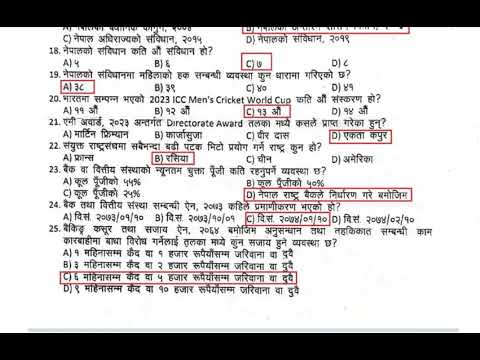 C) नेपाल अधिराज्यको संविधान, २०१५ D) नेपालको संविधान, २०१९
18. नेपालको संविधान कति औँ संविधान हो?
A) ५ B) ६ C) ७ D) ८
19. नेपालको संविधानमा महिलाको हक सम्बन्धी व्यवस्था कुन धारामा गरिएको छ?
A) ३८ B) ३९ C) ४० D) ४१
20. भारतमा सम्पन्न भएको 2023 ICC Men's Cricket World Cup कति औँ संस्करण हो?
A) ११ औँ B) १२ औँ C) १३ औँ D) १४ औँ
21. एमी अवार्ड, २०२३ अन्तर्गत Directorate Award तलका मध्ये कसले प्राप्त गरेका हुन्?
A) मार्टिन फ्रिम्यान B) कार्जासुजा C) वीर दास D) एकता कपुर
22. संयुक्त राष्ट्रसंघमा सबैभन्दा बढी पटक भिटो प्रयोग गर्ने राष्ट्र कुन हो?
A) फ्रान्स B) रसिया C) चीन D) अमेरिका
23. बैंक वा वित्तीय संस्थाको न्यूनतम चुक्ता पूँजी कति रहनुपर्ने व्यवस्था छ?
A) कूल पूँजीको ५५% B) कूल पूँजीको ५०%
C) कूल पूँजीको २५% D) नेपाल राष्ट्र बैंकले निर्धारण गरे बमोजिम
24. बैंक तथा वित्तीय संस्था ऐन, २०७३ कहिले प्रमाणीकरण भएको हो?
A) वि.सं. २०७३/०१/१० B) वि.सं. २०७३/१०/०१ C) वि.सं. २०७४/०१/१० D) वि.सं. २०७४/०२/१०
25. बैंकिङ्ग कसूर तथा सजाय ऐन, २०६४ बमोजिम अनुसन्धान तथा तहकिकात सम्बन्धी काम
कारबाहीमा बाधा विरोध गर्नेलाई तलका मध्ये कुन सजाय हुने व्यवस्था छ?
A) १ महिनासम्म कैद वा १ हजार रूपैयाँसम्म जरिवाना वा दुवै
B) ३ महिनासम्म कैद वा २ हजार रूपैयाँसम्म जरिवाना वा दुवै
C) ६ महिनासम्म कैद वा ५ हजार रूपैयाँसम्म जरिवाना वा दुवै
D) ९ महिनासम्म कैद वा १० हजार रूपैयाँसम्म जरिवाना वा दुवै